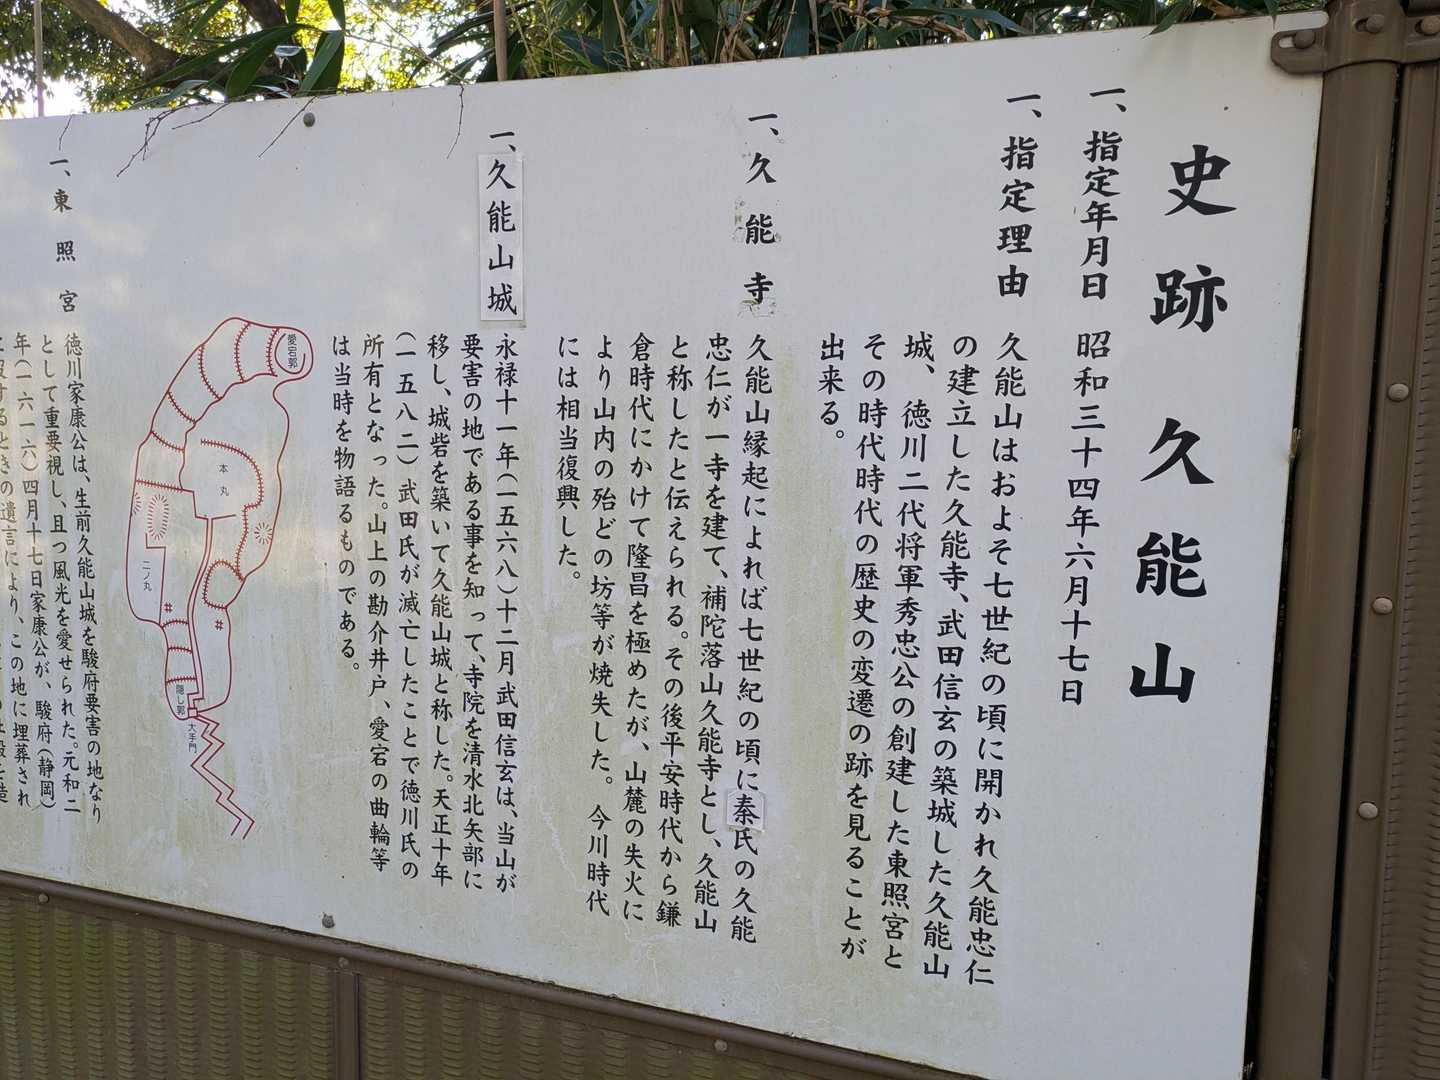 史跡 久能山
一、指定年月日 昭和三十四年六月十七日
一、指定理由
久能山はおよそ七世紀の頃に開かれ久能忠仁
の建立した久能寺、武田信玄の築城した久能山
城、徳川二代将軍秀忠公の創建した東照宮と
その時代時代の歴史の変遷の跡を見ることが
出来る。
一、久能寺
久能山縁起によれば七世紀の頃に秦氏の久能
忠仁が一寺を建て、補陀落山久能寺とし、久能山
と称したと伝えられる。その後平安時代から鎌
倉時代にかけて隆昌を極めたが、山麓の失火に
より山内の殆どの坊等が焼失した。今川時代
には相当復興した。
一、久能山城
永禄十一年(一五六八)十二月武田信玄は、当山が
要害の地である事を知って、寺院を清水北矢部に
移し、城砦を築いて久能山城と称した。天正十年
(一五八二)武田氏が滅亡したことで徳川氏の
所有となった。山上の勘介井戸、愛宕の曲輪等
は当時を物語るものである。
愛宕郭
本丸
二ノ丸
隠し郭
大手門
一、東照宮
徳川家康公は、生前久能山城を駿府要害の地なり
として重要視し、且つ風光を愛せられた。元和二
年(一六一六)四月十七日家康公が、駿府(静岡)
するときの遺言により、この地に埋葬され